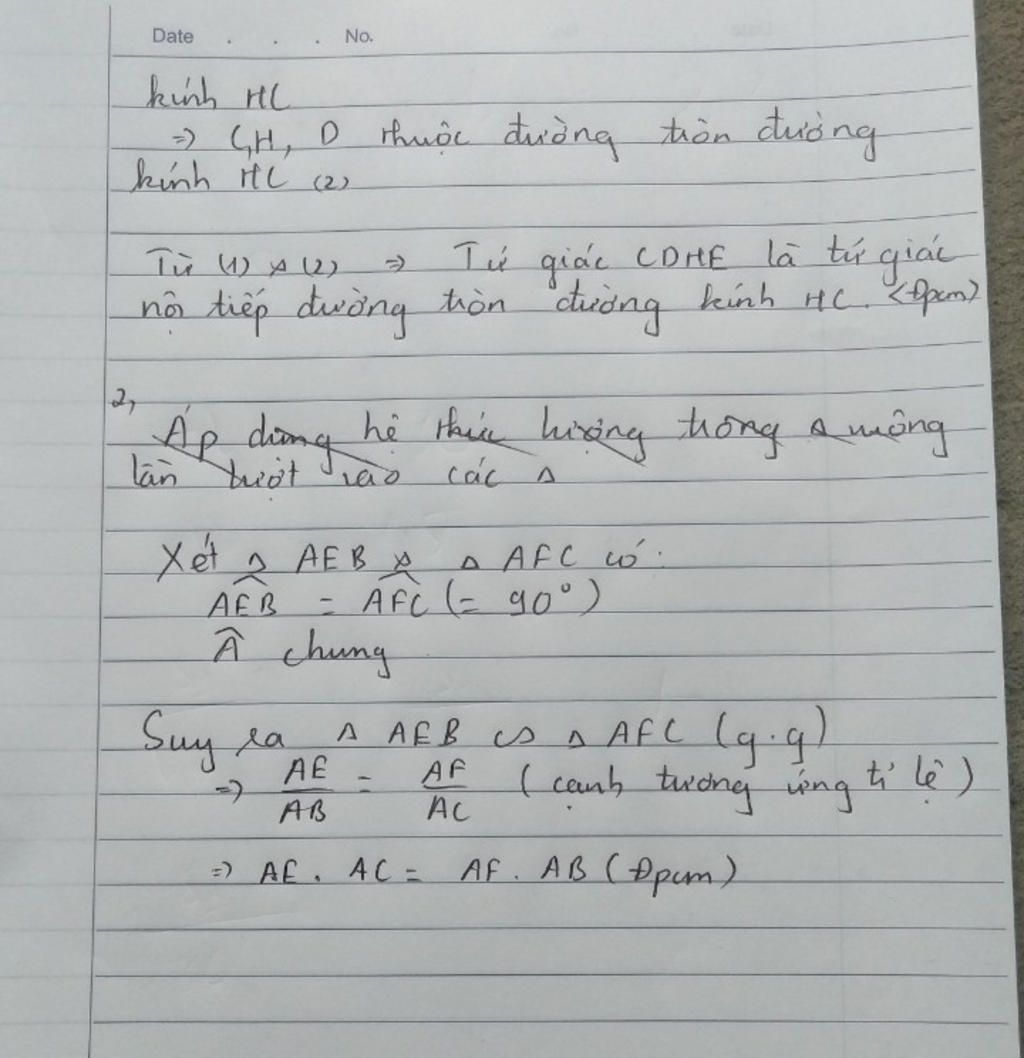 Date . . . No.
kính HC
=> C,H, D thuộc đường tròn đường
kính HC (2)
Từ (1) & (2) => Tứ giác CDHE là tứ giác
nội tiếp đường tròn đường kính HC. <Đpcm>
2,
Áp dụng hệ thức lượng trong Δ vuông
lần lượt vào các Δ
Xét Δ AEB & Δ AFC có:
AEB = AFC (= 90°)
Â chung
Suy ra Δ AEB ∽ Δ AFC (g.g)
=> AE/AB = AF/AC (cạnh tương ứng tỉ lệ)
=> AE. AC = AF. AB (Đpcm)